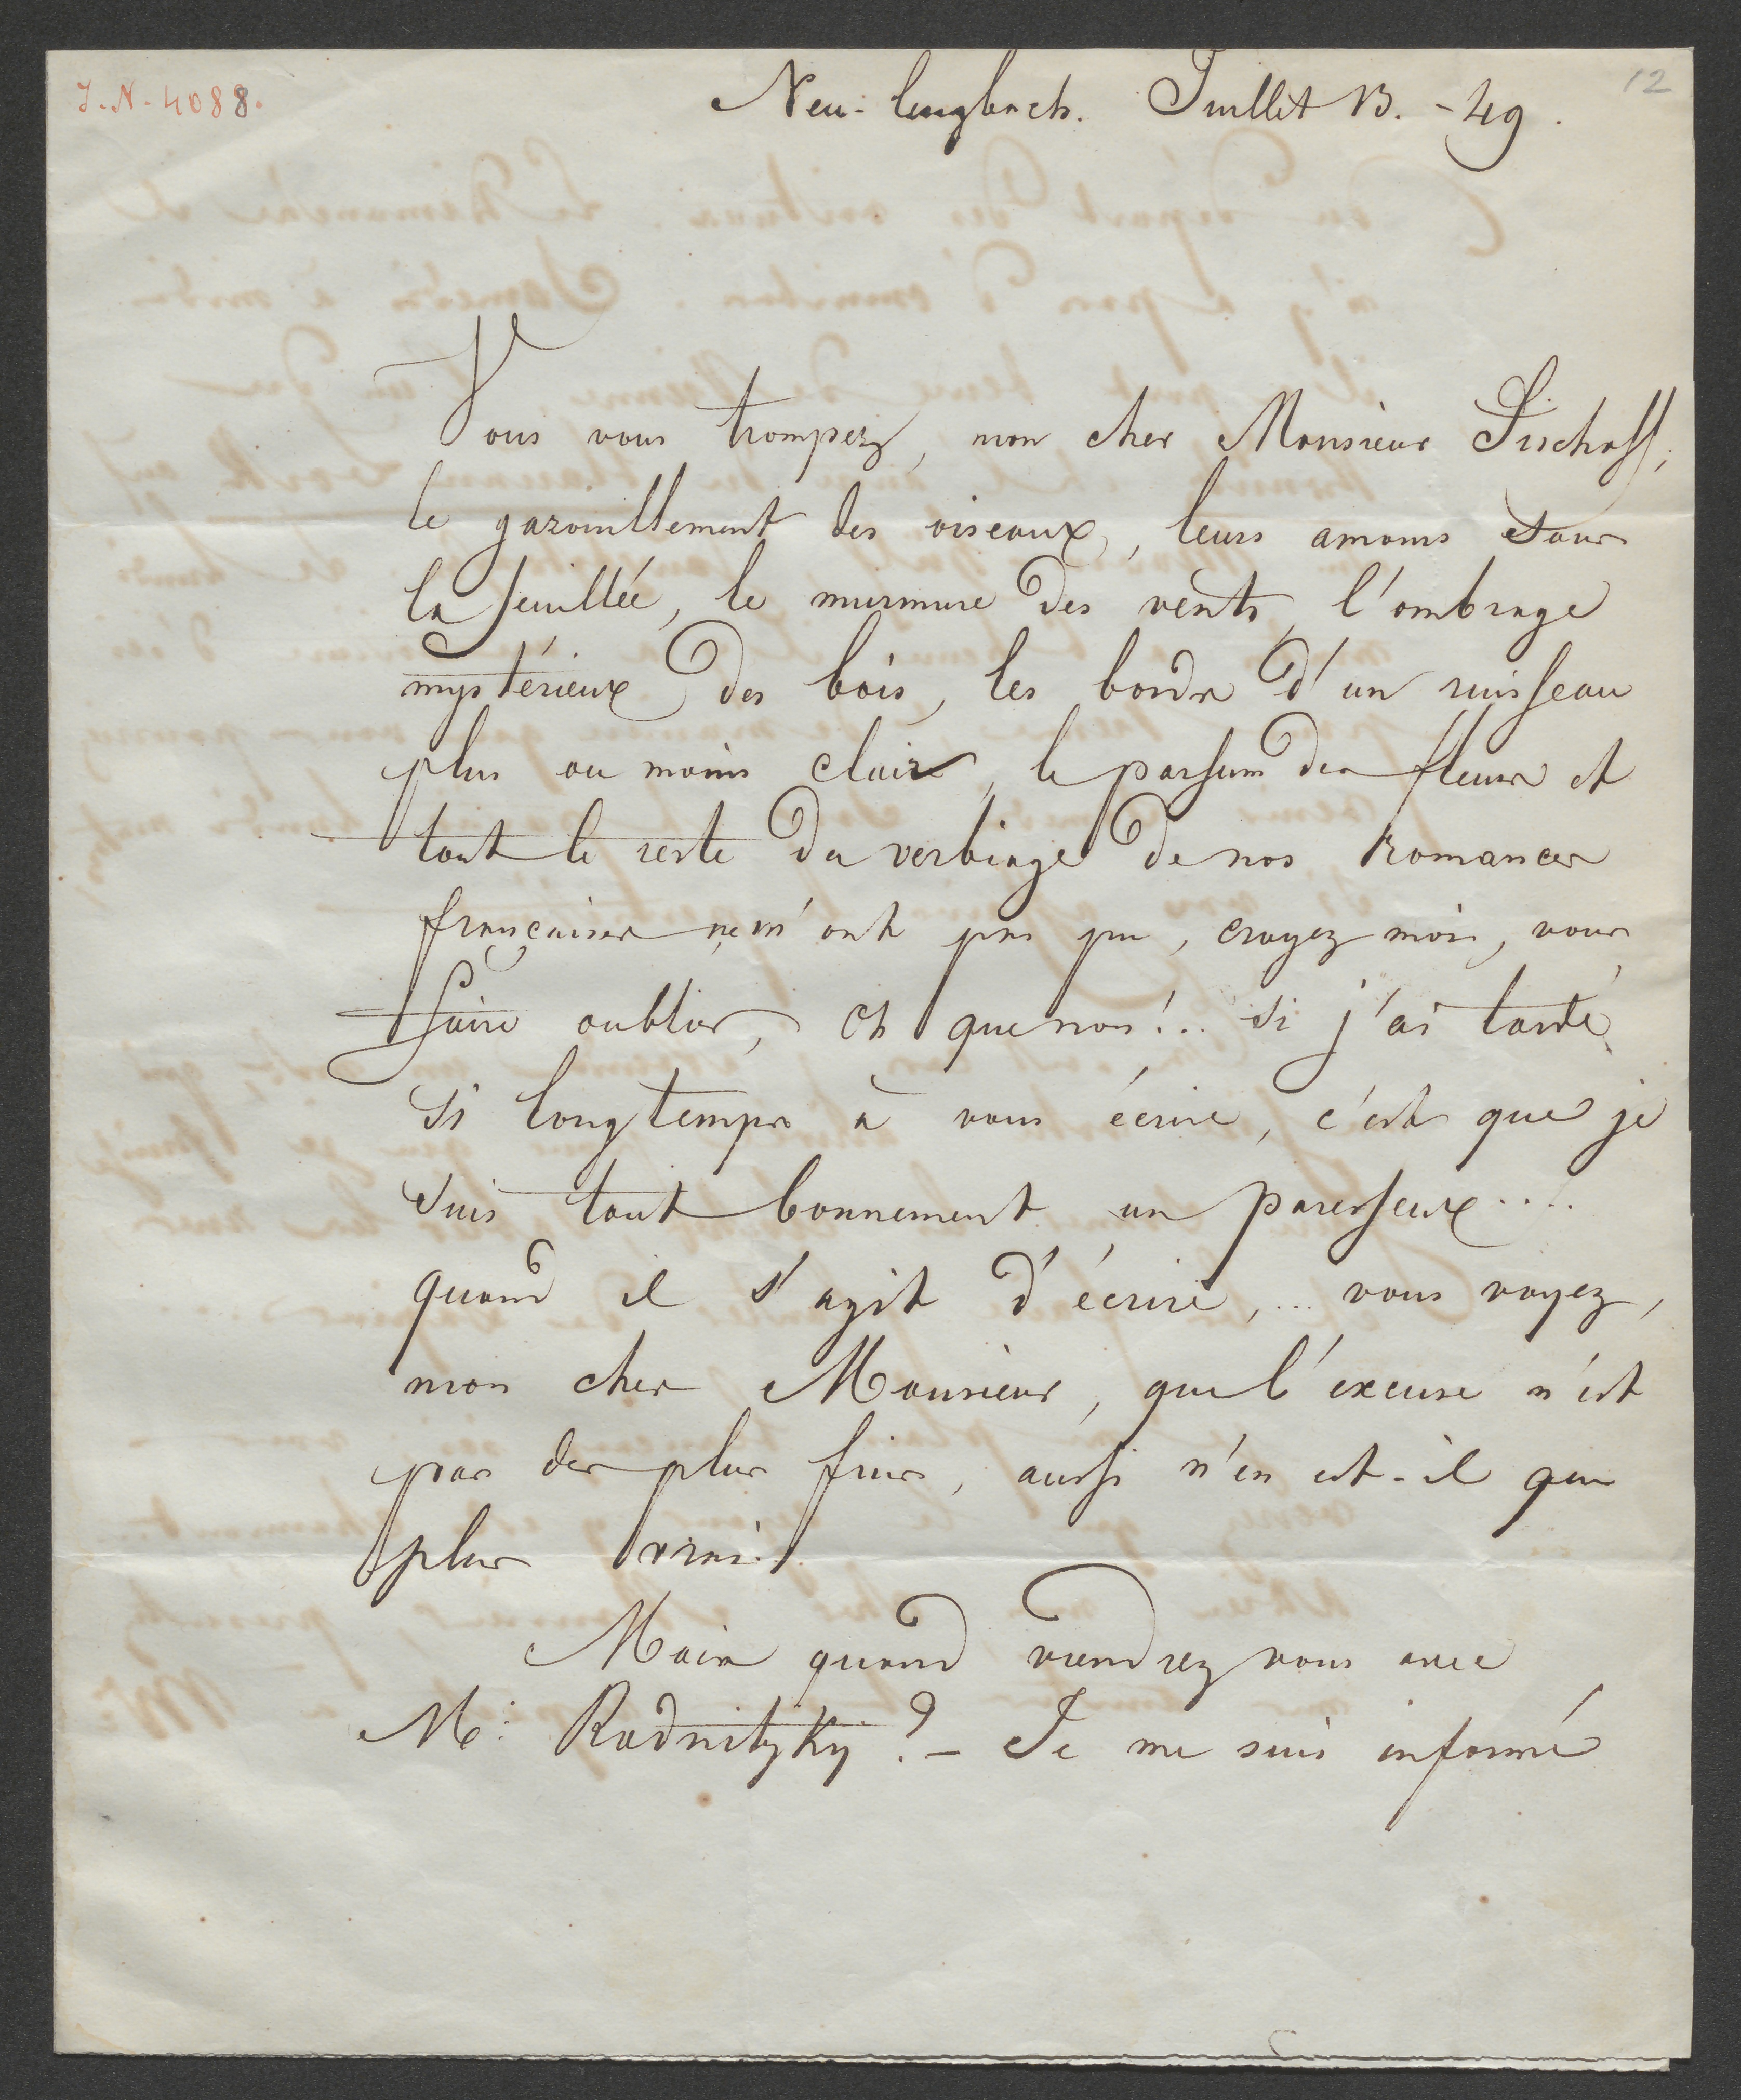 J. N. 4088.
12
Neu-lengbach. Juillet 13. -49.
Vous vous trompez, mon cher Monsieur Fischoff,
le gazouillement des oiseaux, leurs amours sous
la feuillée, le murmure des vents, l'ombrage
mystérieux des bois, les bords d'un ruisseau
plus ou moins clair, le parfum des fleurs et
tout le reste du verbiage de nos Romances
françaises ne m'ont pas pu, croyez moi, vous
faire oublier, oh que non!.. si j'ai tardé
si longtemps à vous écrire, c'est que je
suis tout bonnement un paresseux....
quand il s'agit d'écrire,... vous voyez,
mon cher Monsieur, que l'excuse n'est
pas des plus fines, aussi n'en est-il que
plus vrai.
Mais quand viendrez vous avec
Mr: Radnitzky? - Je me suis informé